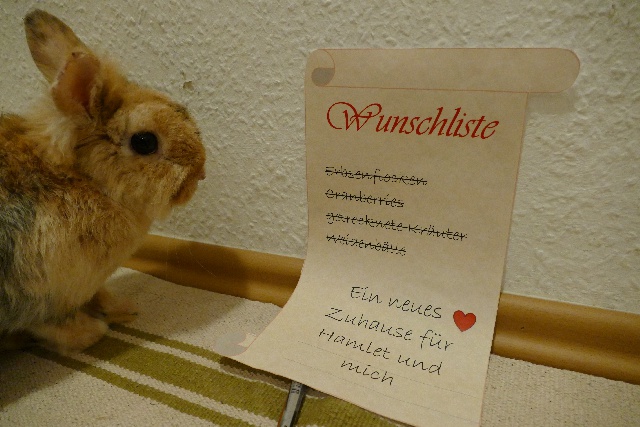 Wunschliste
Erbsenflocken
Cranberries
getrocknete Kräuter
Ein neues
Zuhause für
Hamlet und
mich